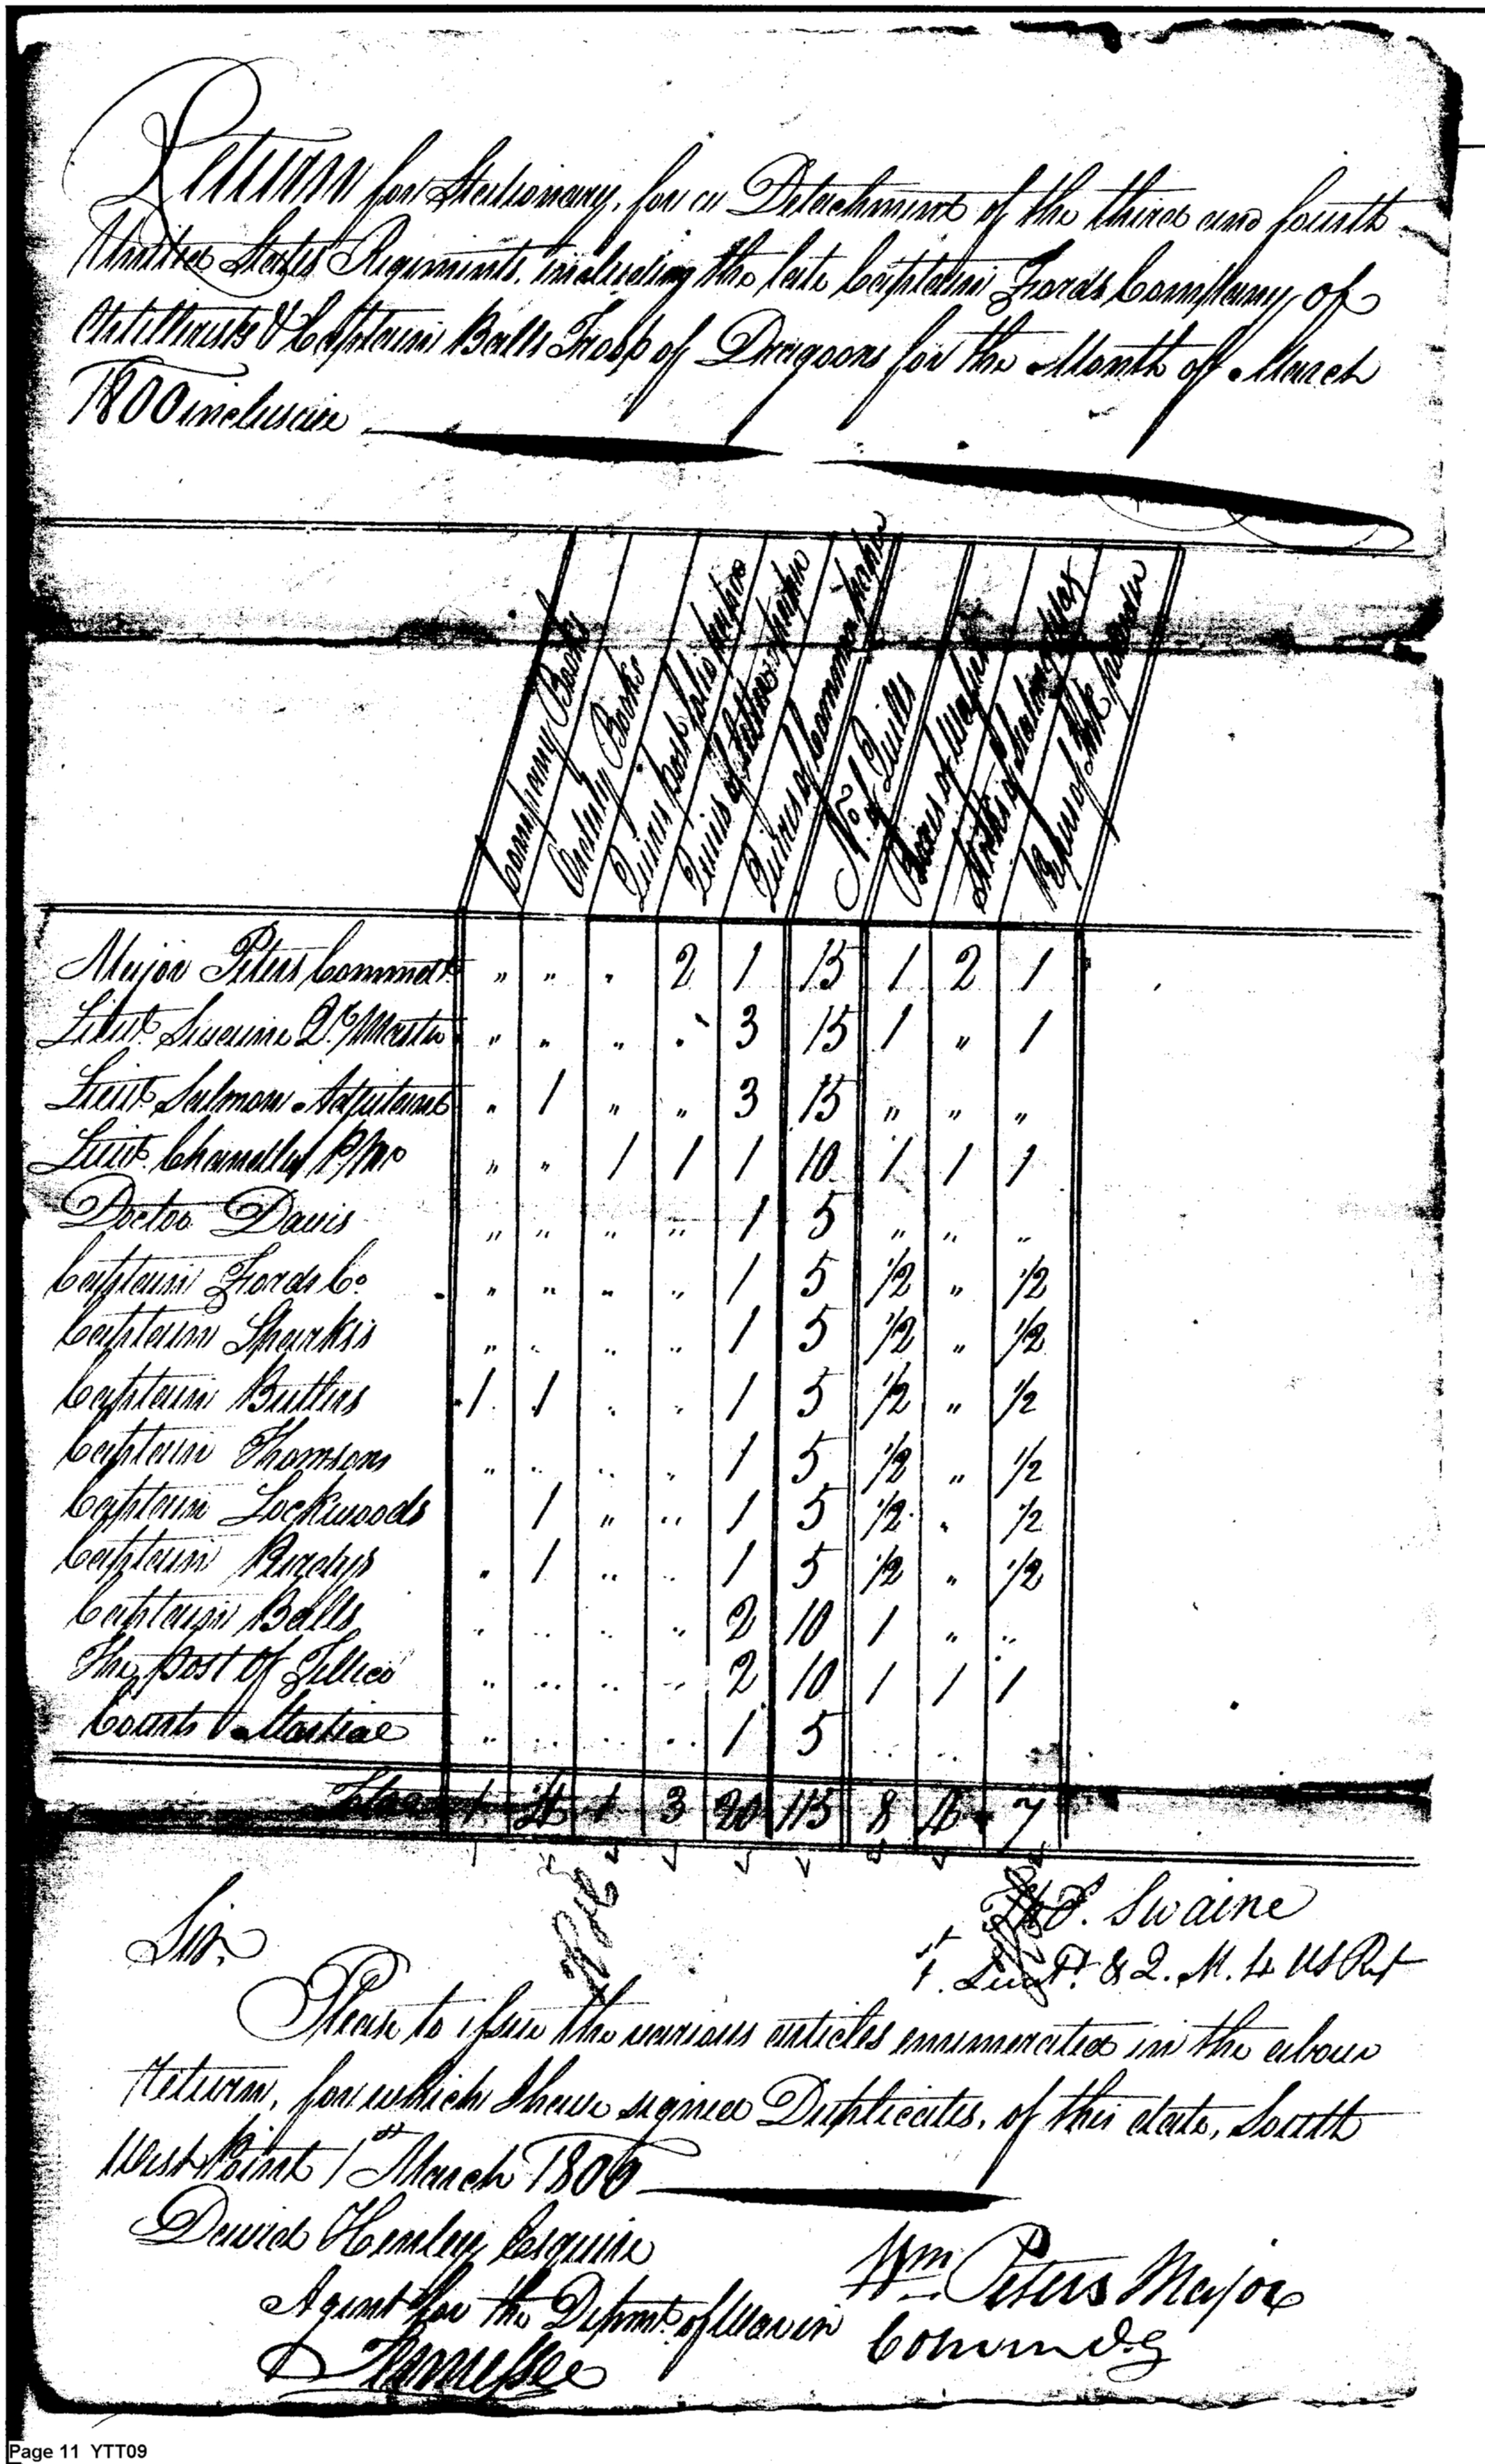 Return for Stationary, for a Detachment of the third and fourth
United States Regiments, including the late Captain Fords Company of
Artillerists & Captain Balls Troop of Dragoons for the Month of March
1800 inclusive
Company Books
Orderly Books
Quires post folio paper
Quires of letter paper
Quires of Common paper
No. of Quills
Boxes of Wafers
Sticks of Sealing Wax
Papers of Ink powder
Major Peters Commdt. " " " 2 1 15 1 2 1
Lieut. Swaine Qr. Master " " " " 3 15 1 " 1
Lieut. Salmon Adjutant " 1 " " 3 15 " " "
Lieut. Chandler P/Mr " " 1 1 1 10 1 1 1
Doctor Davis " " " " 1 5 " " "
Captain Fords Co. " " " " 1 5 1/2 " 1/2
Captain Sparks's " " " " 1 5 1/2 " 1/2
Captain Butlers 1 1 " " 1 5 1/2 " 1/2
Captain Thomsons " " " " 1 5 1/2 " 1/2
Captain Lockwoods 1 " " 1 5 1/2 " 1/2
Captain Purdys " 1 " " 1 5 1/2 " 1/2
Captain Balls " " " " 2 10 1 " "
The post of Tellico " " " " 2 10 1 1 1
Courts Martial " " " " 1 5 " "
Total 1 4 1 3 20 115 8 4 7
Swaine
1st Lieut. & Q. M. 4 US Rt
Sir,
Please to issue the various articles enumerated in the above
Return, for which I have signed Duplicates, of this date, South
West Point 1st March 1800
David Henley Esquire
Agent for the Depmt. of War in
Tennessee
Wm. Peters Major
Commdg
Page 11 YTT09